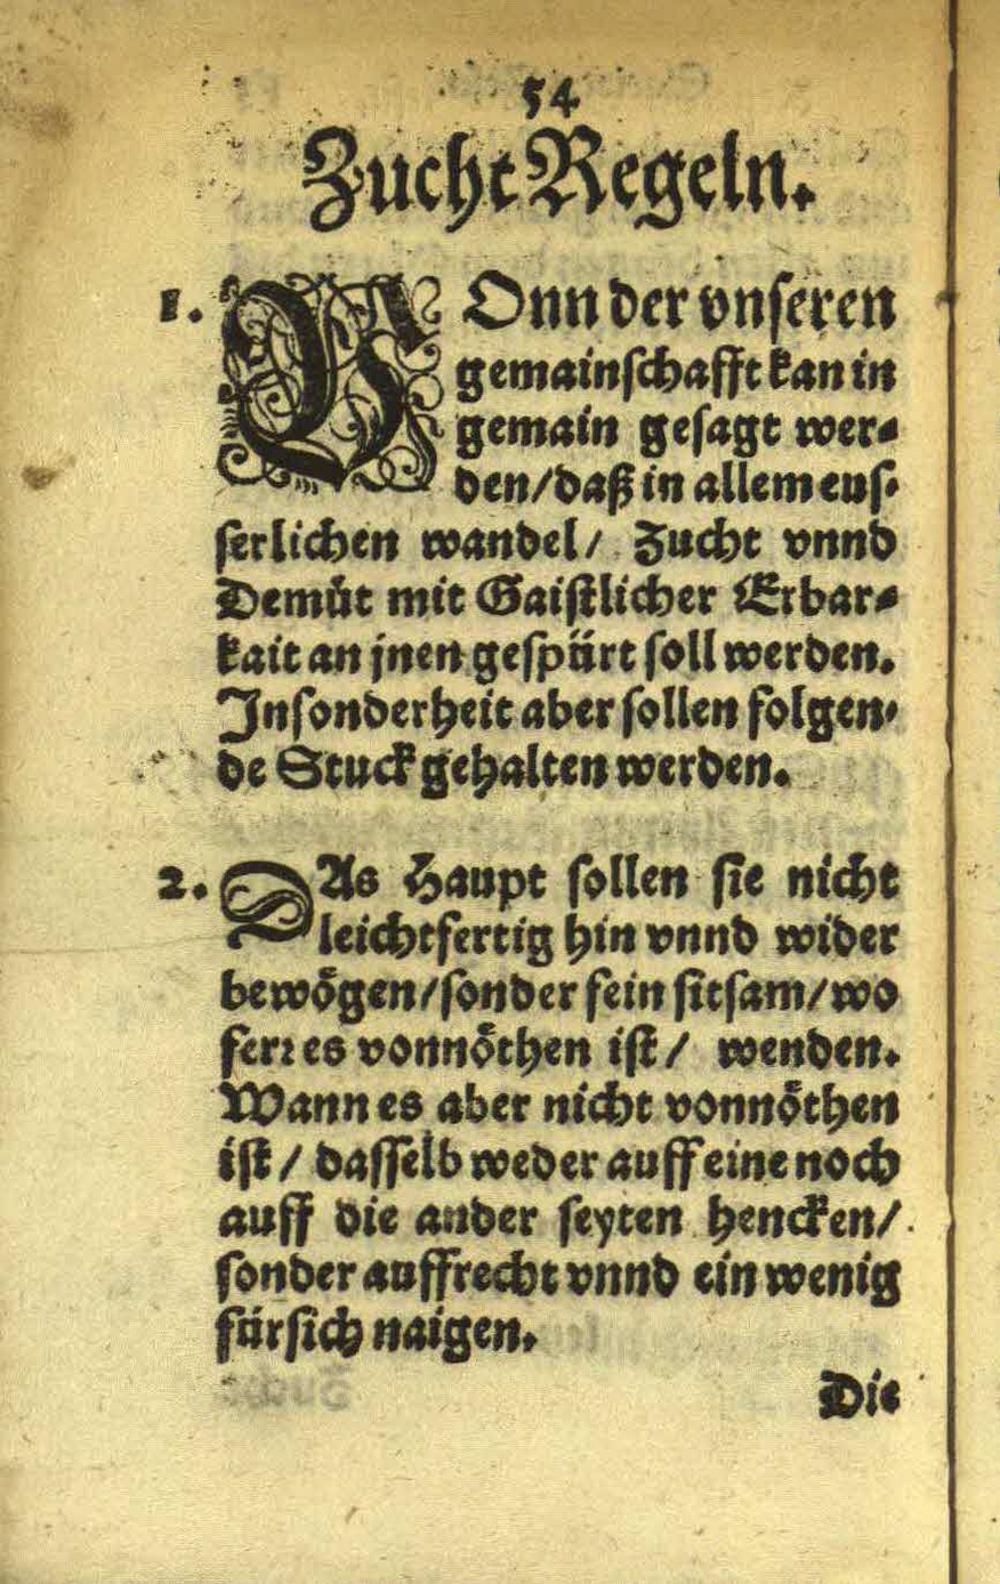 54
Zucht Regeln.
1. VOnn der vnseren
gemainschafft kan in
gemain gesagt wer⸗
den/daß in allem eus⸗
serlichen wandel/ Zucht vnnd
Demüt mit Gaistlicher Erbar⸗
kait an jnen gespürt soll werden.
Insonderheit aber sollen folgen⸗
de Stuck gehalten werden.
2. DAs Haupt sollen sie nicht
leichtfertig hin vnnd wider
bewögen/sonder fein sitsam/wo
ferr es vonnöthen ist/ wenden.
Wann es aber nicht vonnöthen
ist/ dasselb weder auff eine noch
auff die ander seyten hencken/
sonder auffrecht vnnd ein wenig
fürsich naigen.
Die